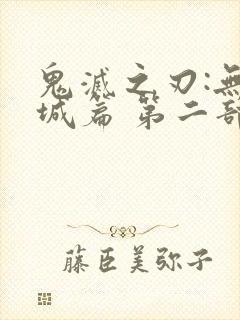 鬼滅之刃:無
城篇 第二部
藤臣美弥子